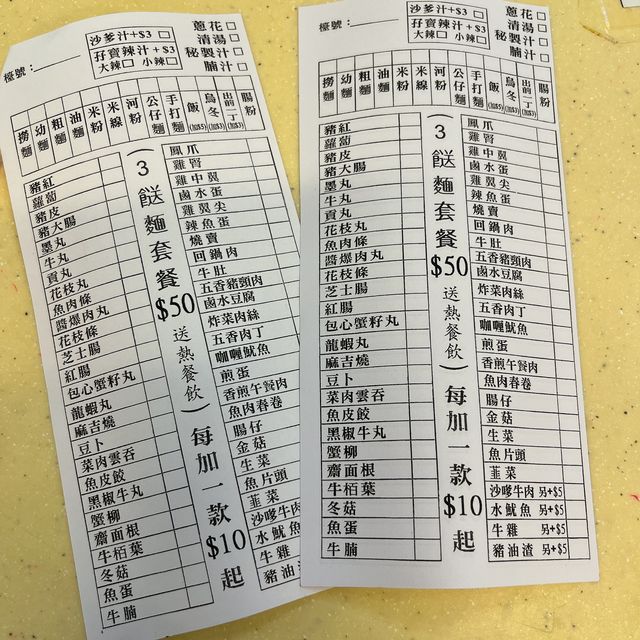 蔥花
沙爹汁+$3
清湯
孖寶辣汁+$3
秘製汁
大辣 小辣
腩汁
檯號：
撈麵 幼麵 粗麵 油麵 米粉 米線 河粉 公仔麵 手打麵 飯(加$5) 烏冬(加$3) 出前一丁(加$3) 腸粉
豬紅
蘿蔔
豬皮
豬大腸
墨丸
牛丸
貢丸
花枝丸
魚肉條
醬爆肉丸
花枝條
芝士腸
紅腸
包心蟹籽丸
龍蝦丸
麻吉燒
豆卜
菜肉雲吞
魚皮餃
黑椒牛丸
蟹柳
齋面根
牛栢葉
冬菇
魚蛋
牛腩
(3餸麵套餐$50送熱餐飲)每加一款$10起
鳳爪
雞腎
雞中翼
鹵水蛋
雞翼尖
辣魚蛋
燒賣
回鍋肉
牛肚
五香豬頸肉
鹵水豆腐
炸菜肉絲
五香肉丁
咖喱魷魚
煎蛋
香煎午餐肉
魚肉春卷
腸仔
金菇
生菜
魚片頭
韮菜
沙嗲牛肉
水魷魚
牛雜
豬油渣
蔥花
沙爹汁+$3
清湯
孖寶辣汁+$3
秘製汁
大辣 小辣
腩汁
檯號：
撈麵 幼麵 粗麵 油麵 米粉 米線 河粉 公仔麵 手打麵 飯(加$5) 烏冬(加$3) 出前一丁(加$3) 腸粉
豬紅
蘿蔔
豬皮
豬大腸
墨丸
牛丸
貢丸
花枝丸
魚肉條
醬爆肉丸
花枝條
芝士腸
紅腸
包心蟹籽丸
龍蝦丸
麻吉燒
豆卜
菜肉雲吞
魚皮餃
黑椒牛丸
蟹柳
齋面根
牛栢葉
冬菇
魚蛋
牛腩
(3餸麵套餐$50送熱餐飲)每加一款$10起
鳳爪
雞腎
雞中翼
鹵水蛋
雞翼尖
辣魚蛋
燒賣
回鍋肉
牛肚
五香豬頸肉
鹵水豆腐
炸菜肉絲
五香肉丁
咖喱魷魚
煎蛋
香煎午餐肉
魚肉春卷
腸仔
金菇
生菜
魚片頭
韮菜
沙嗲牛肉 另+$5
水魷魚 另+$5
牛雜 另+$5
豬油渣 另+$5